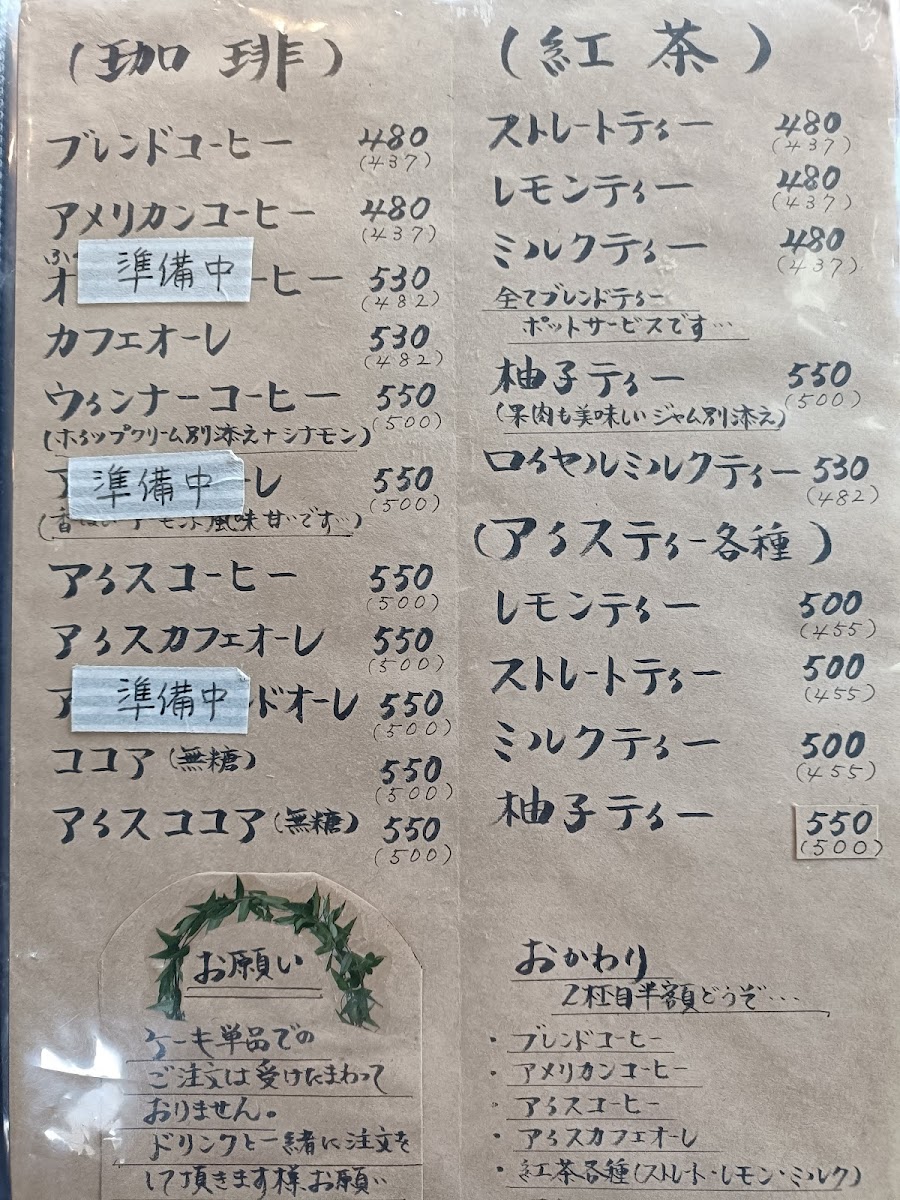 (珈琲)
ブレンドコーヒー 480
(437)
アメリカンコーヒー 480
(437)
準備中
オ ーヒー 530
(482)
カフェオーレ 530
(482)
ウィンナーコーヒー 550
(500)
(ホイップクリーム別添え+シナモン)
準備中
ア ーレ 550
(500)
風味 甘いです…)
アイスコーヒー 550
(500)
アイスカフェオーレ 550
(500)
準備中
ア ンドオーレ 550
(500)
ココア(無糖) 550
(500)
アイスココア(無糖) 550
(500)
お願い
ケーキ単品での
ご注文は受けたまわって
おりません。
ドリンクと一緒に注文を
して頂きます様、お願い
(紅茶)
ストレートティー 480
(437)
レモンティー 480
(437)
ミルクティー 480
(437)
全てブレンドティー
ポットサービスです…
柚子ティー 550
(500)
(果肉も美味しいジャム別添え)
ロイヤルミルクティー 530
(482)
(アイスティー各種)
レモンティー 500
(455)
ストレートティー 500
(455)
ミルクティー 500
(455)
柚子ティー 550
(500)
おかわり
2杯目半額どうぞ…
・ブレンドコーヒー
・アメリカンコーヒー
・アイスコーヒー
・アイスカフェオーレ
・紅茶各種(ストレート・レモン・ミルク)